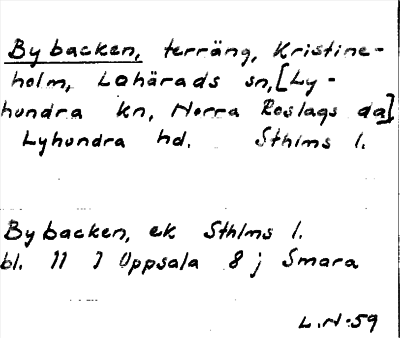 By backen, terräng, Kristine-
holm, Lohärads sn, [Ly-
hundra kn, Norra Roslags da]
Lyhundra hd. Sthlms l.
By backen, ek Sthlms l.
bl. 11 I Uppsala 8 j Smara
L.N:59